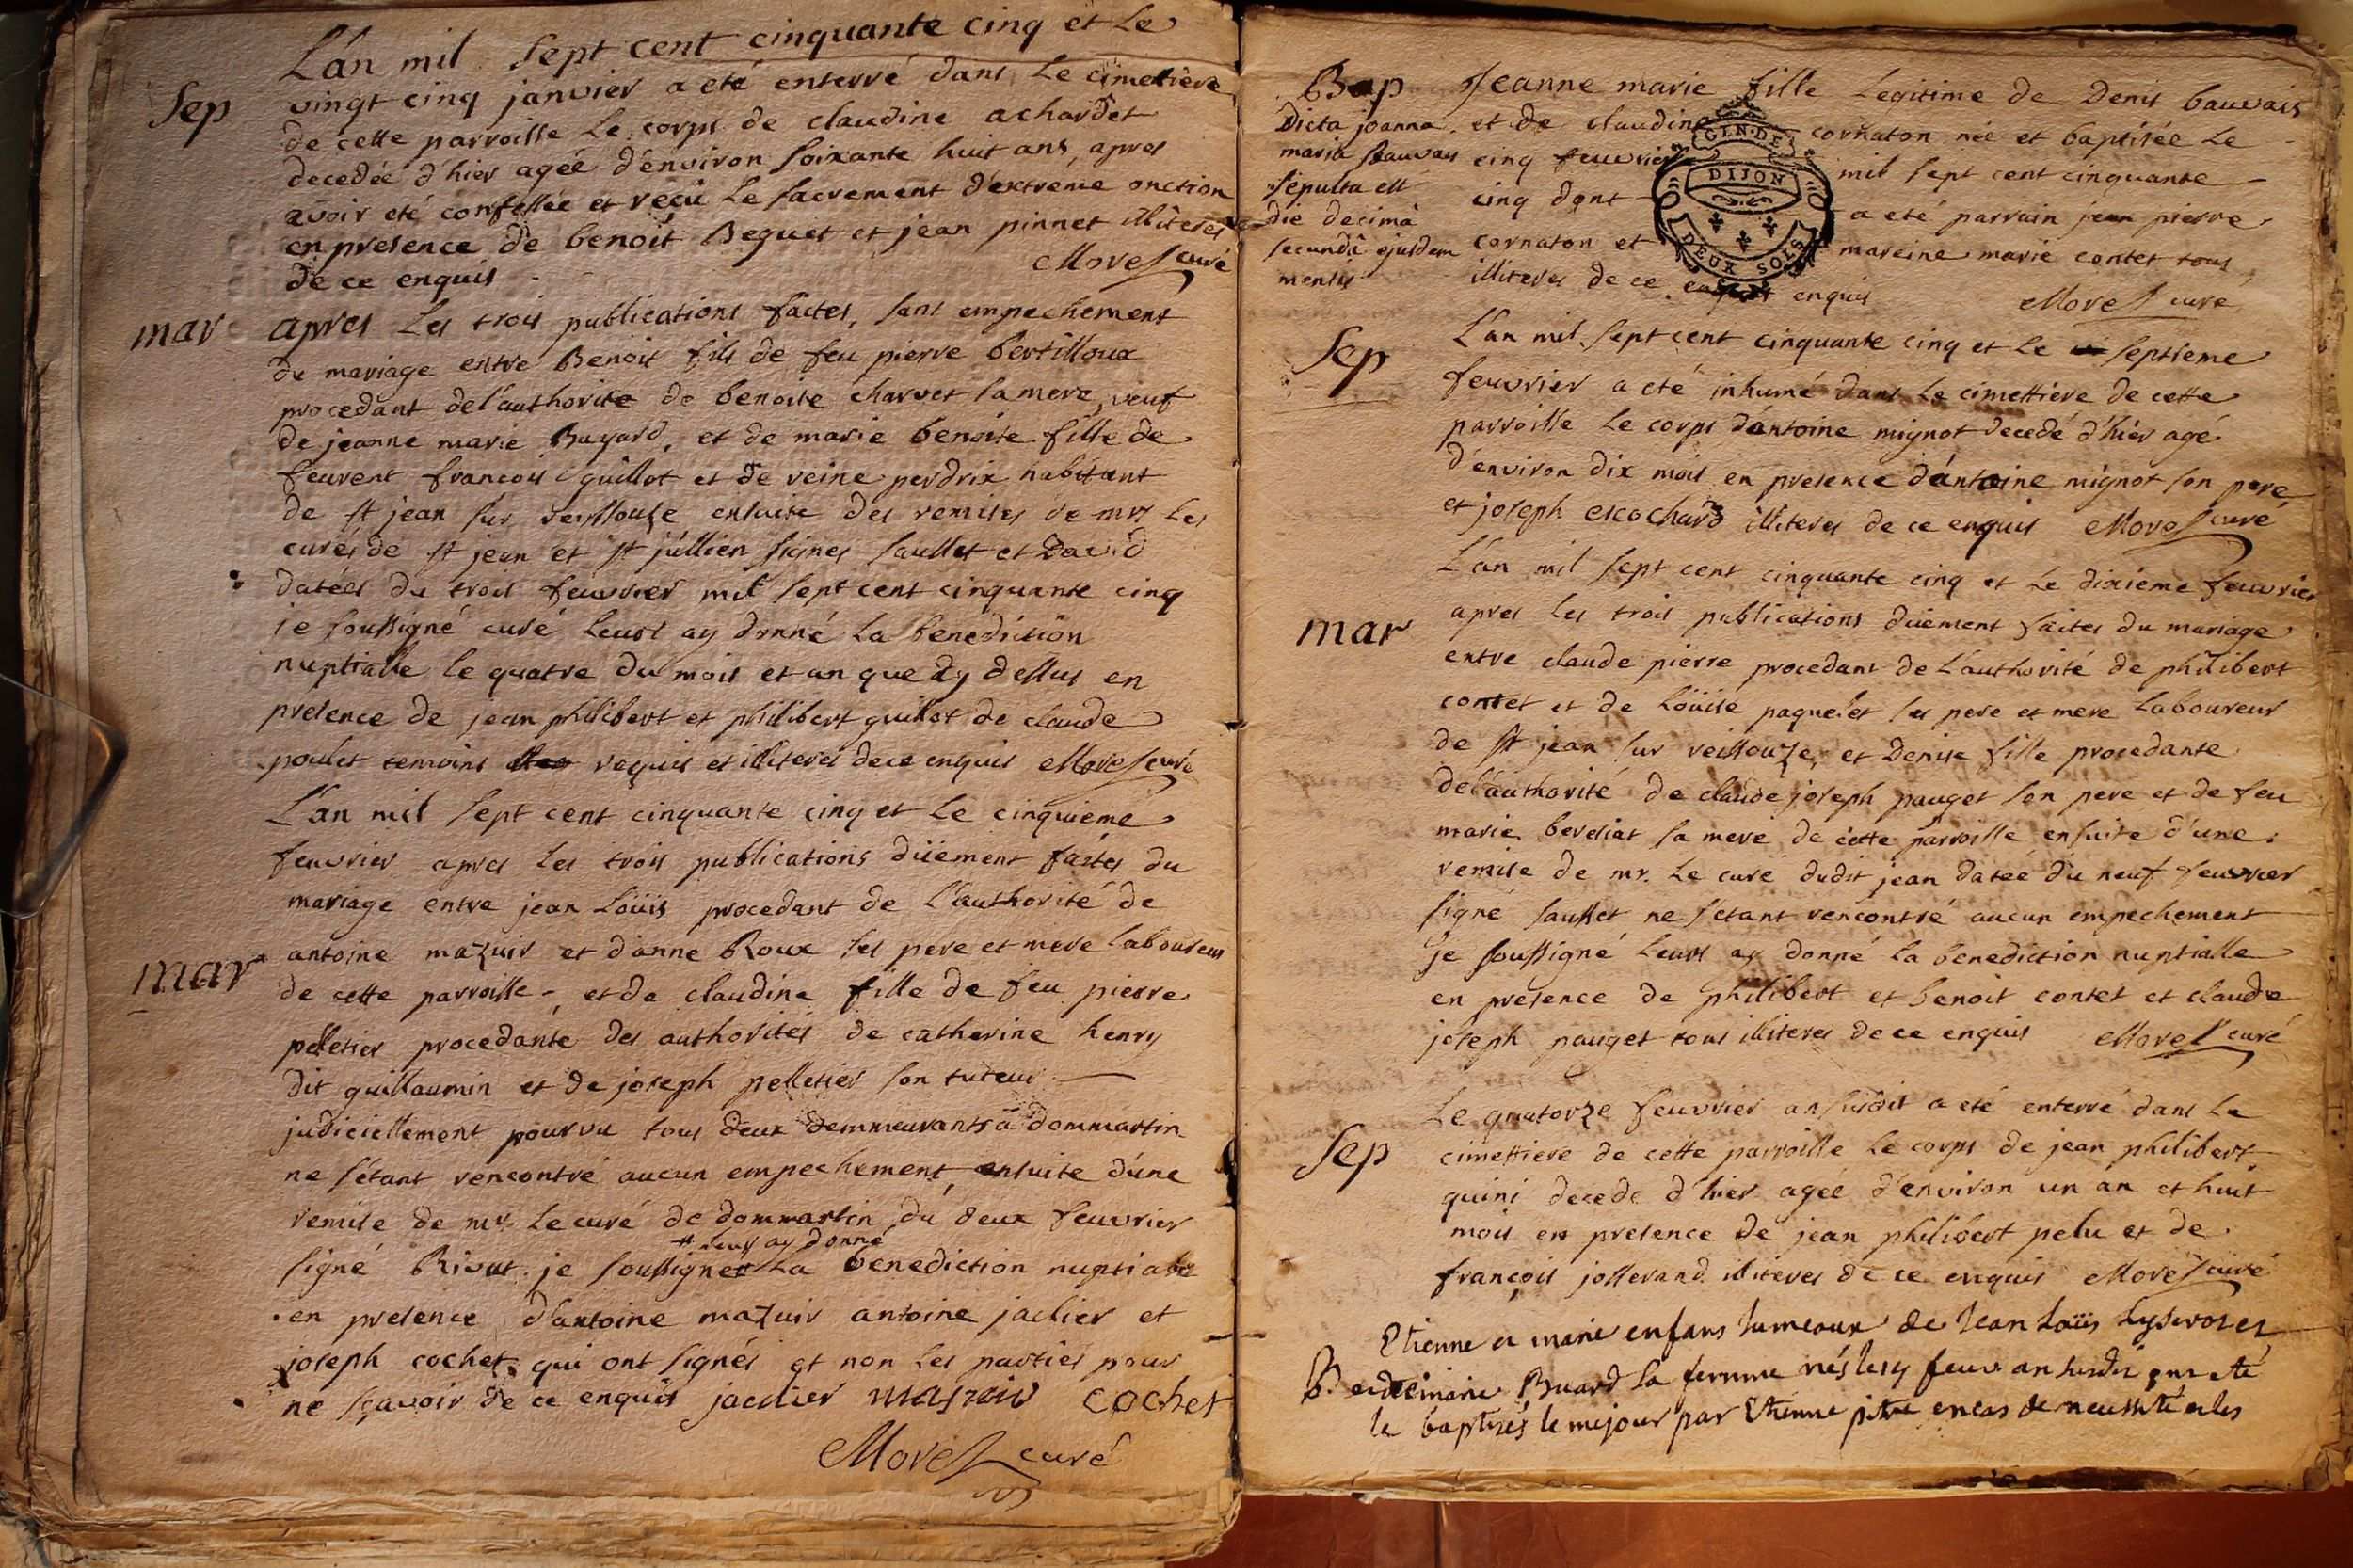 L'an mil sept cent cinquante cinq et le
Sep
vingt cinq janvier a eté enterré dans le cimetiere
de cette parroisse le corps de claudine achardet
decedée d'hier agée d'environ soixante huit ans, apres
avoir eté confessée et reçu le sacrement d'extreme onction
en presence de benoit Beguet et jean pinnet illiteres
de ce enquis
Morel curé
mar
apres les trois publications faites, sans empechement
du mariage entre Benoit fils de feu pierre bertilloux
procedant de l'authorite de benoite charvet sa mere, veuf
de jeanne marie Buyard, et de marie benoite fille de
feurent francois guillot et de reine perdrix habitant
de st jean sur veissouze ensuite des remises de mrs les
curés de st jean et st jullien signes saullet et David
datées du trois feuvrier mil sept cent cinquante cinq
je soussigné curé leurs ay donné la benediction
nuptialle le quatre du mois et an que dessus en
presence de jean philibert et philibert guillot de claude
poulet temoins requis et illiteres de ce enquis Morel curé
L'an mil sept cent cinquante cinq et le cinquieme
feuvrier apres les trois publications düement faites du
mariage entre jean Loüis procedant de l'authorité de
mar
antoine mazuir et d'anne Roux ses pere et mere laboureur
de cette parroisse -, et de claudine fille de feu pierre
pelletier procedante des authorités de catherine henry
dit guillaumin et de joseph pelletier son tuteur
judiciellement pourvu tous deux demmeurants a dommartin
ne s'étant rencontré aucun empechement, ensuite d'une
remise de mr. le curé de dommartin du deux feuvrier
# leurs ay donné
signé Rivat je soussigner la benediction nuptiale
en presence d'antoine mazuir antoine jaclier et
joseph cochet qui ont signés et non les parties pour
ne sçavoir de ce enquis jaclier masuir cochet
Morel curé
Bap
Jeanne marie fille legitime de Denis bauvais
Dicta joanna
maria Bauvais
sepulta est
die decimâ
secundâ ejusdem
mensis
et de claudine cornaton née et baptisée le
cinq feuvrier mil sept cent cinquante
cinq dont a eté parrain jean pierre
cornaton et mareine marie contet tous
illiteres de ce enquis
GEN. DE
DIJON
DEUX SOLS
Morel curé
Sep
L'an mil sept cent cinquante cinq et le septieme
feuvrier a eté inhumé dans le cimettiere de cette
parroisse le corps d'antoine mignot decedé d'hier agé
d'environ dix mois en presence d'antoine mignot son pere
et joseph escochard illiteres de ce enquis Morel curé
L'an mil sept cent cinquante cinq et le dixieme feuvrier
mar
apres les trois publications düement faites du mariage
entre claude pierre procedant de l'authorité de philibert
contet et de Loüise paquelet ses pere et mere laboureur
de st jean sur veissouze, et Denise fille procedante
de l'authorité de claude joseph pauget son pere et de feu
marie bereliat sa mere de cette parroisse ensuite d'une
remise de mr. le curé dudit jean datée du neuf feuvrier
signé saullet ne s'etant rencontré aucun empechement
je soussigné leurs ay donné la benediction nuptialle
en presence de philibert et benoit contet et claude
joseph pauget tous illiteres de ce enquis Morel curé
Le quatorze feuvrier an susdit a eté enterré dans le
Sep
cimettiere de cette parroisse le corps de jean philibert
quini decede d'hier agée d'environ un an et huit
mois en presence de jean philibert pelu et de
françois josserand illiteres de ce enquis Morel curé
Etienne et marie enfans jumeaux de Jean Loüis
B.
Buard sa femme nés le feuv an susdit ont eté
baptisés le mejour par Etienne en cas de necessité